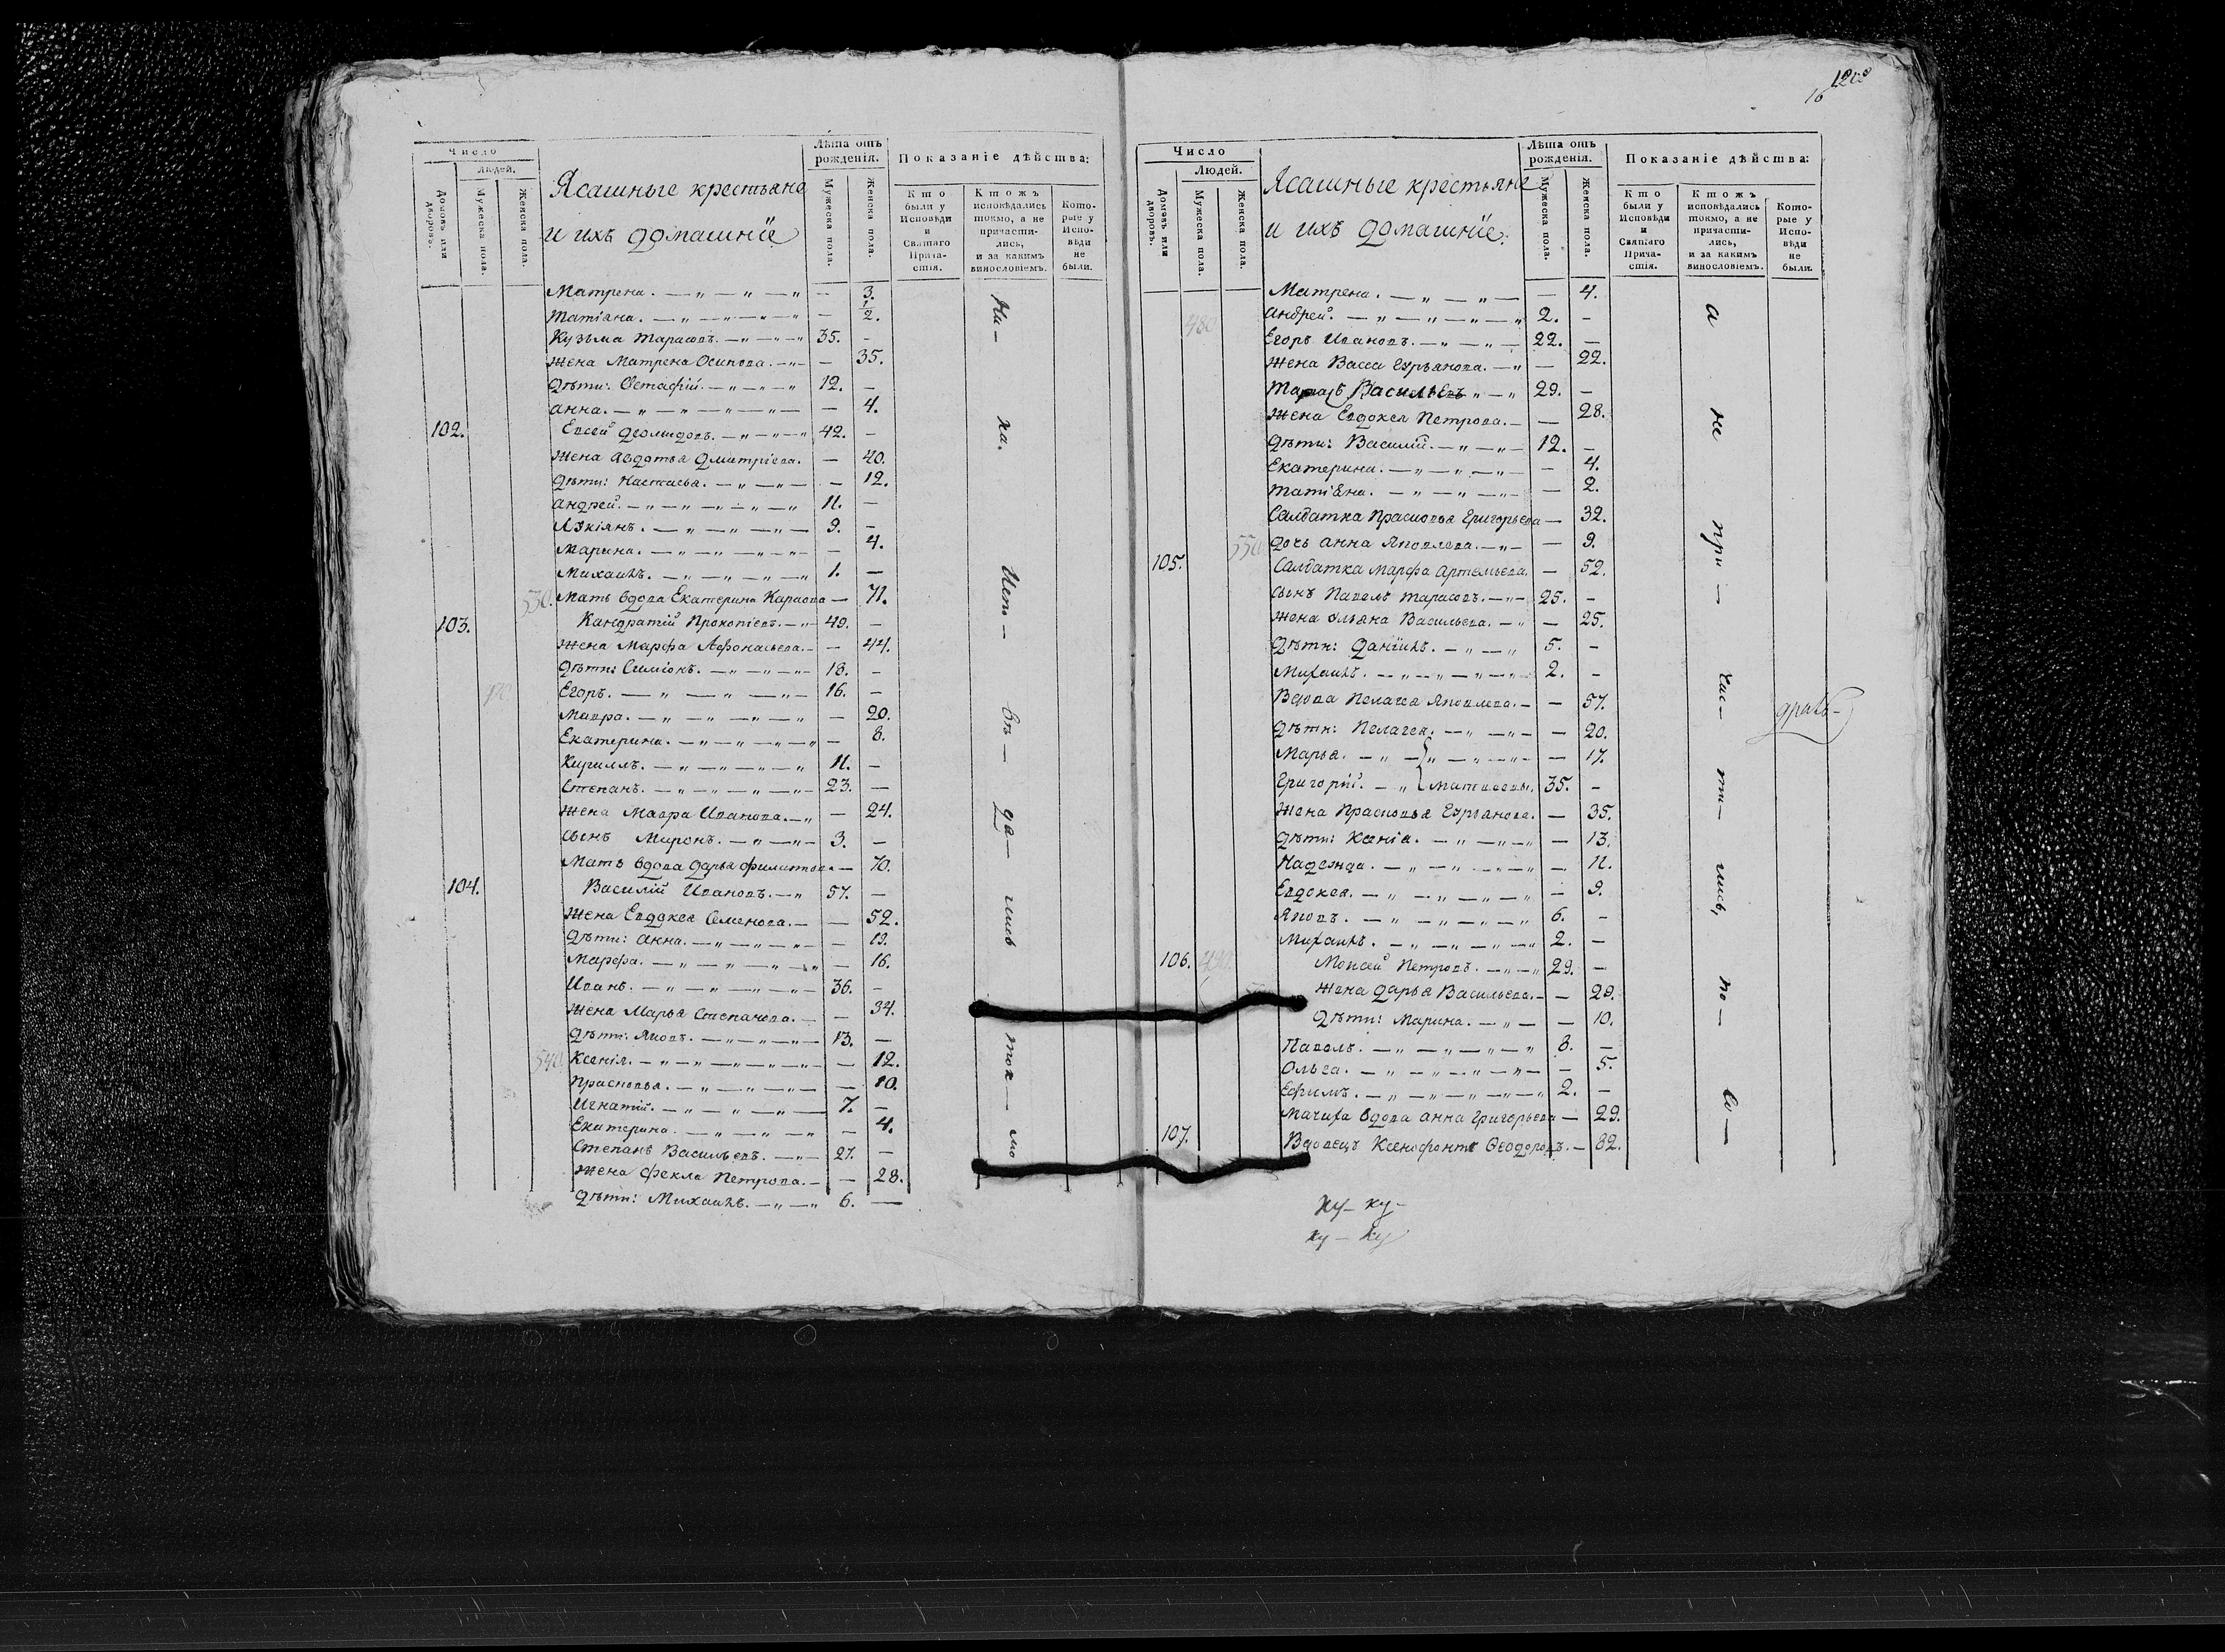 Число
Людей.
Домовъ или дворовъ.
Мужеска пола.
Женска пола.
Ясашные крестьяне
и ихъ домашніе
Лѣта отъ рожденія.
Мужеска пола.
Женска пола.
Показаніе дѣйства:
Кто были у Исповѣди и Святаго Причастія.
Ктожъ исповѣдались токмо, а не причастились, и за какимъ винословіемъ.
Которые у Исповѣди не были.
Матрена. — „ — „ — „ — 3.
Татіана. — „ — „ — „ — 1/2.
Кузьма Тарасовъ. — „ — „ — „ 35. —
Жена Матрена Осипова. — „ — — 35.
Дѣти: Евстафій. — „ — „ — „ 12. —
Анна. — „ — „ — „ — „ — — 4.
102. Евсей Деомидовъ. — „ — „ — „ 42. —
Жена Авдотья Дмитріева. — 40.
Дѣти: Настасья. — „ — „ — — 12.
Андрей. — „ — „ — „ — „ 11. —
Лукіянъ. — „ — „ — „ — 9. —
Марина. — „ — „ — „ — „ — — 4.
Михаилъ. — „ — „ — „ — „ 1. —
530. Мать вдова Екатерина Карпова — 71.
103. Кандратій Прокопіевъ. — „ — 49. —
Жена Марфа Афонасьева. — — 44.
Дѣти: Симіонъ. — „ — „ — „ — 18. —
470 Егоръ. — „ — „ — „ — 16. —
Мавра. — „ — „ — „ — „ — 20.
Екатерина. — „ — „ — „ — „ — 8.
Кириллъ. — „ — „ — „ — „ 11. —
Степанъ. — „ — „ — „ — „ — 23. —
Жена Мавра Иванова. — „ — 24.
Сынъ Миронъ. — „ — „ — 3. —
Мать вдова Дарья Филиппова — 70.
104. Василій Ивановъ. — „ 57. —
Жена Евдокея Семенова. — — 52.
Дѣти: Анна. — „ — „ — „ — — 19.
Марфа. — „ — „ — „ — „ — 16.
Иванъ. — „ — „ — „ — „ — 36. —
Жена Марья Степанова. — — 34.
Дѣти: Яковъ. — „ — „ — „ — 13. —
540. Ксенія. — „ — „ — „ — „ — — 12.
Прасковья. — „ — „ — „ — — 10.
Игнатій. — „ — „ — „ — 7. —
Екатерина. — „ — „ — „ — 4.
Степанъ Васильевъ. — „ — 27. —
Жена Фекла Петрова. — — 28.
Дѣти: Михаилъ. — „ — „ 6. —
Ни-
ка.
Исп-
вѣ-
да-
лись
ток-
мо
16
Число
Людей.
Домовъ или дворовъ.
Мужеска пола.
Женска пола.
Ясашные крестьяне
и ихъ домашніе.
Лѣта отъ рожденія.
Мужеска пола.
Женска пола.
Показаніе дѣйства:
Кто были у Исповѣди и Святаго Причастія.
Ктожъ исповѣдались токмо, а не причастились, и за какимъ винословіемъ.
Которые у Исповѣди не были.
Матрена. — „ — „ — — 4.
480 Андрей. — „ — „ — „ — „ 2. —
Егоръ Ивановъ. — „ — „ — 22. —
Жена Васса Гурьянова. — „ — 22.
Тарасъ Васильевъ — „ — „ 29. —
Жена Евдокея Петрова. — — 28.
Дѣти: Василій. — „ — „ — 12. —
Екатерина. — „ — „ — „ — — 4.
Татіяна. — „ — „ — „ — — 2.
Салдатка Прасковья Григорьева — 32.
550 Дочь Анна Яковлева. — „ — — 9.
105. Салдатка Марфа Артемьева. — 52.
Сынъ Павелъ Тарасовъ. — „ — 25. —
Жена Ульяна Васильева. — „ — 25.
Дѣти: Даніилъ. — „ — „ 5. —
Михаилъ. — „ — „ — „ — „ — 2. —
Вдова Пелагея Яковлева. — — 57.
Дѣти: Пелагея. — „ — „ — — 20.
Марья. — „ — „ — „ — „ — — 17.
Григорій. — „ Матвеевы. 35. —
Жена Прасковья Гурьянова. — 35.
Дѣти: Ксенія. — „ — „ — „ — 13.
Надежда. — „ — „ — „ — „ — 11.
Евдокея. — „ — „ — „ — „ — 9.
Яковъ. — „ — „ — „ — „ 6. —
Михаилъ. — „ — „ — „ — „ 2. —
106. 490. Моисей Петровъ. — „ — „ 29. —
Жена Дарья Васильева. — — 29.
Дѣти: Марина. — „ — — 10.
Павелъ. — „ — „ — „ — „ 8. —
Ольга. — „ — „ — „ — „ — — 5.
Ефимъ. — „ — „ — „ — „ — „ 2. —
Мачиха вдова Анна Григорьева — 29.
107. Вдовецъ Ксенофонтъ Ѳеодоровъ. — 82.
а
не
при-
час-
ти-
лись,
по-
ку- ку-
ку- ку